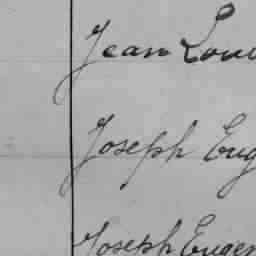 Jean Lou
Joseph Eug
Joseph Eugen